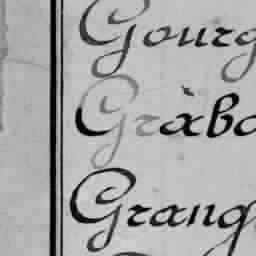 Gourg
Grabo
Grang